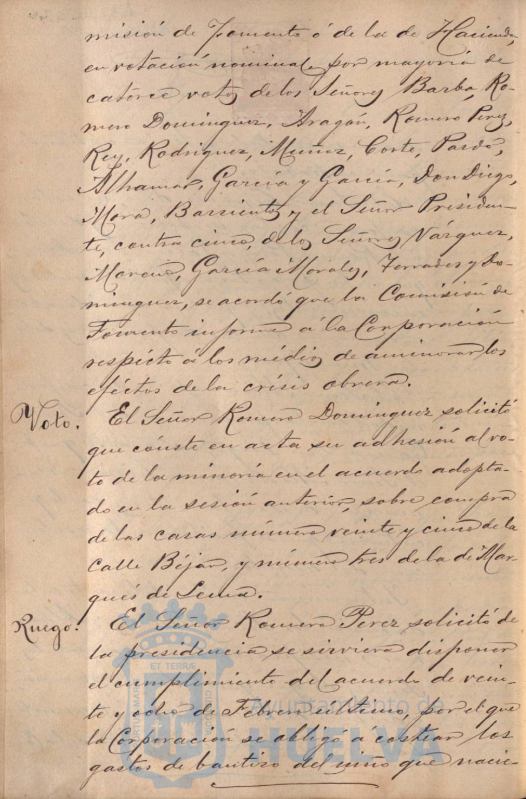 misión de Fomento ó de la de Hacienda,
en votación nominal, por mayoría de
catorce votos de los Señores Barba, Ro-
mero Dominguez, Aragón, Romero Perez,
Rey, Rodriguez, Muñoz, Corte, Pardo,
Alhamar, García y García, Don Diego,
Mora, Barrientos y el Señor Presiden-
te, contra cinco, de los Señores Vázquez,
Moreno, García Morales, Terrades y Do-
minguez, se acordó que la Comisión de
Fomento informe á la Corporación
respecto á los medios de aminorar los
efectos de la crisis obrera.
Voto. El Señor Romero Dominguez solicitó
que conste en acta su adhesión al vo-
to de la minoría en el acuerdo adopta-
do en la sesión anterior, sobre compra
de las casas número veinte y cinco de la
calle Béjar, y número tres de la de Mar-
qués de Lema.
Ruego. El Señor Romero Perez solicitó de
la presidencia se sirviera disponer
el cumplimiento del acuerdo de vein-
te y ocho de Febrero último, por el que
la Corporación se obligó á costear los
gastos de bautizo del niño que nacie-
ET TERRÆ
Ayuntamiento de
HUELVA